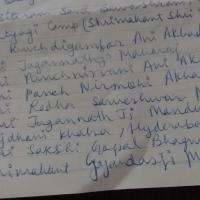 Sitaram Sant Sarveshwram,
tyagi Camp (Shrimahant Shri
Panchdigamber Ani Akha
Jagannathji Maharaj
Panchnirvani Ani Ak
Panch Nirmohi Akha
Radha Sarveshwar M
Jagannath Ji Mandi
jdham khalsa, Hyderaba
Sakshi Gopal Bhagw
himahant Gyandasji M